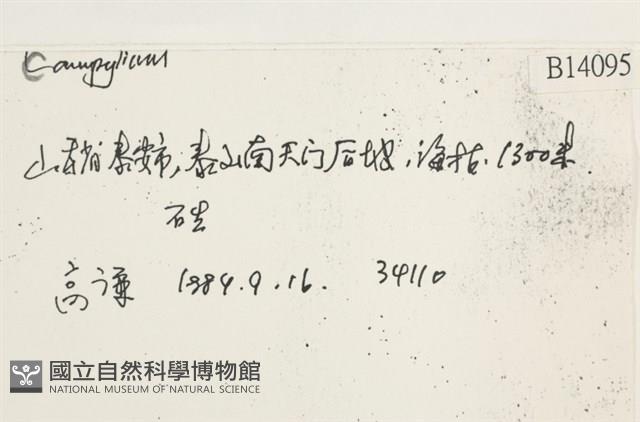 Campylium
B14095
山东省泰安市,泰山南天门后坡,海拔.1300米.
石生
高谦 1984.9.16. 34110
國立自然科學博物館
NATIONAL MUSEUM OF NATURAL SCIENCE